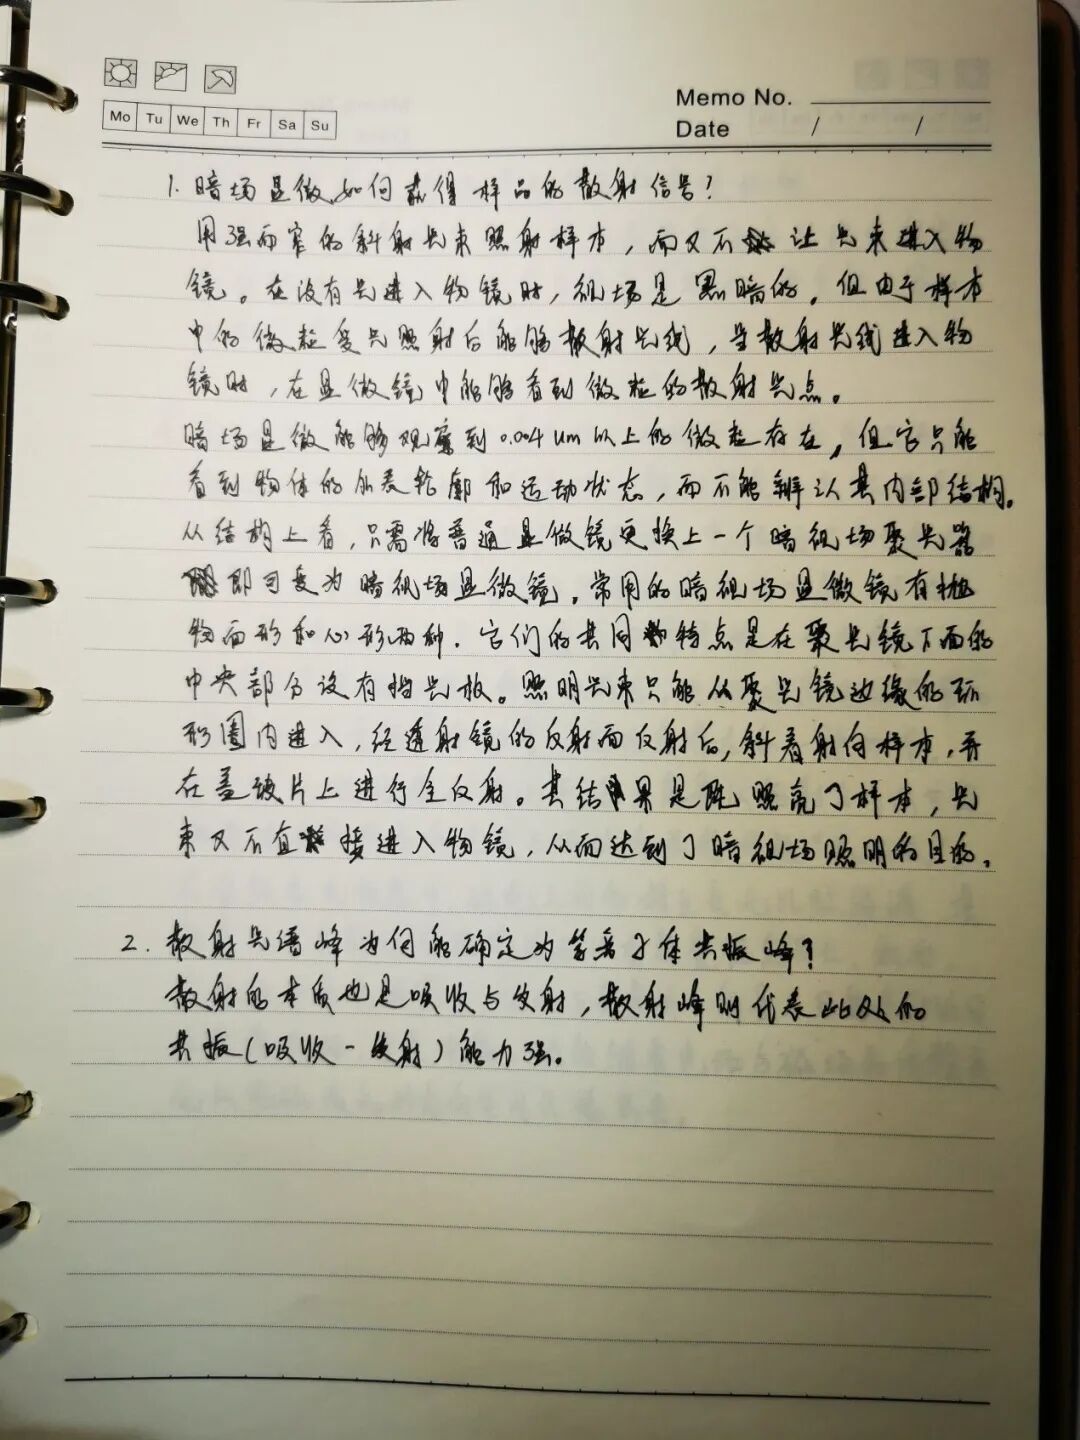 Memo No.
Mo Tu We Th Fr Sa Su
Date / /
1. 暗场显微如何获得样品的散射信号？
用强而窄的斜射光束照射样本，而又不让光束进入物
镜。在没有光进入物镜时，视场是黑暗的。但由于样本
中的微粒受光照射后能够散射光线，当散射光线进入物
镜时，在显微镜中能够看到微粒的散射光点。
暗场显微能够观察到0.004um以上的微粒存在，但它只能
看到物体的外表轮廓和运动状态，而不能辨认其内部结构。
从结构上看，只需将普通显微镜更换上一个暗视场聚光器
即可变为暗视场显微镜。常用的暗视场显微镜有抛
物面形和心形两种。它们的共同特点是在聚光镜下面的
中央部分设有挡光板。照明光束只能从聚光镜边缘的环
形圈内进入，经透射镜的反射面反射后，斜着射向样本，并
在盖玻片上进行全反射。其结果是既照亮了样本，光
束又不直接进入物镜，从而达到了暗视场照明的目的。
2. 散射光谱峰为何能确定为等离子体共振峰？
散射的本质也是吸收与发射，散射峰则代表此处的
共振(吸收-发射)能力强。